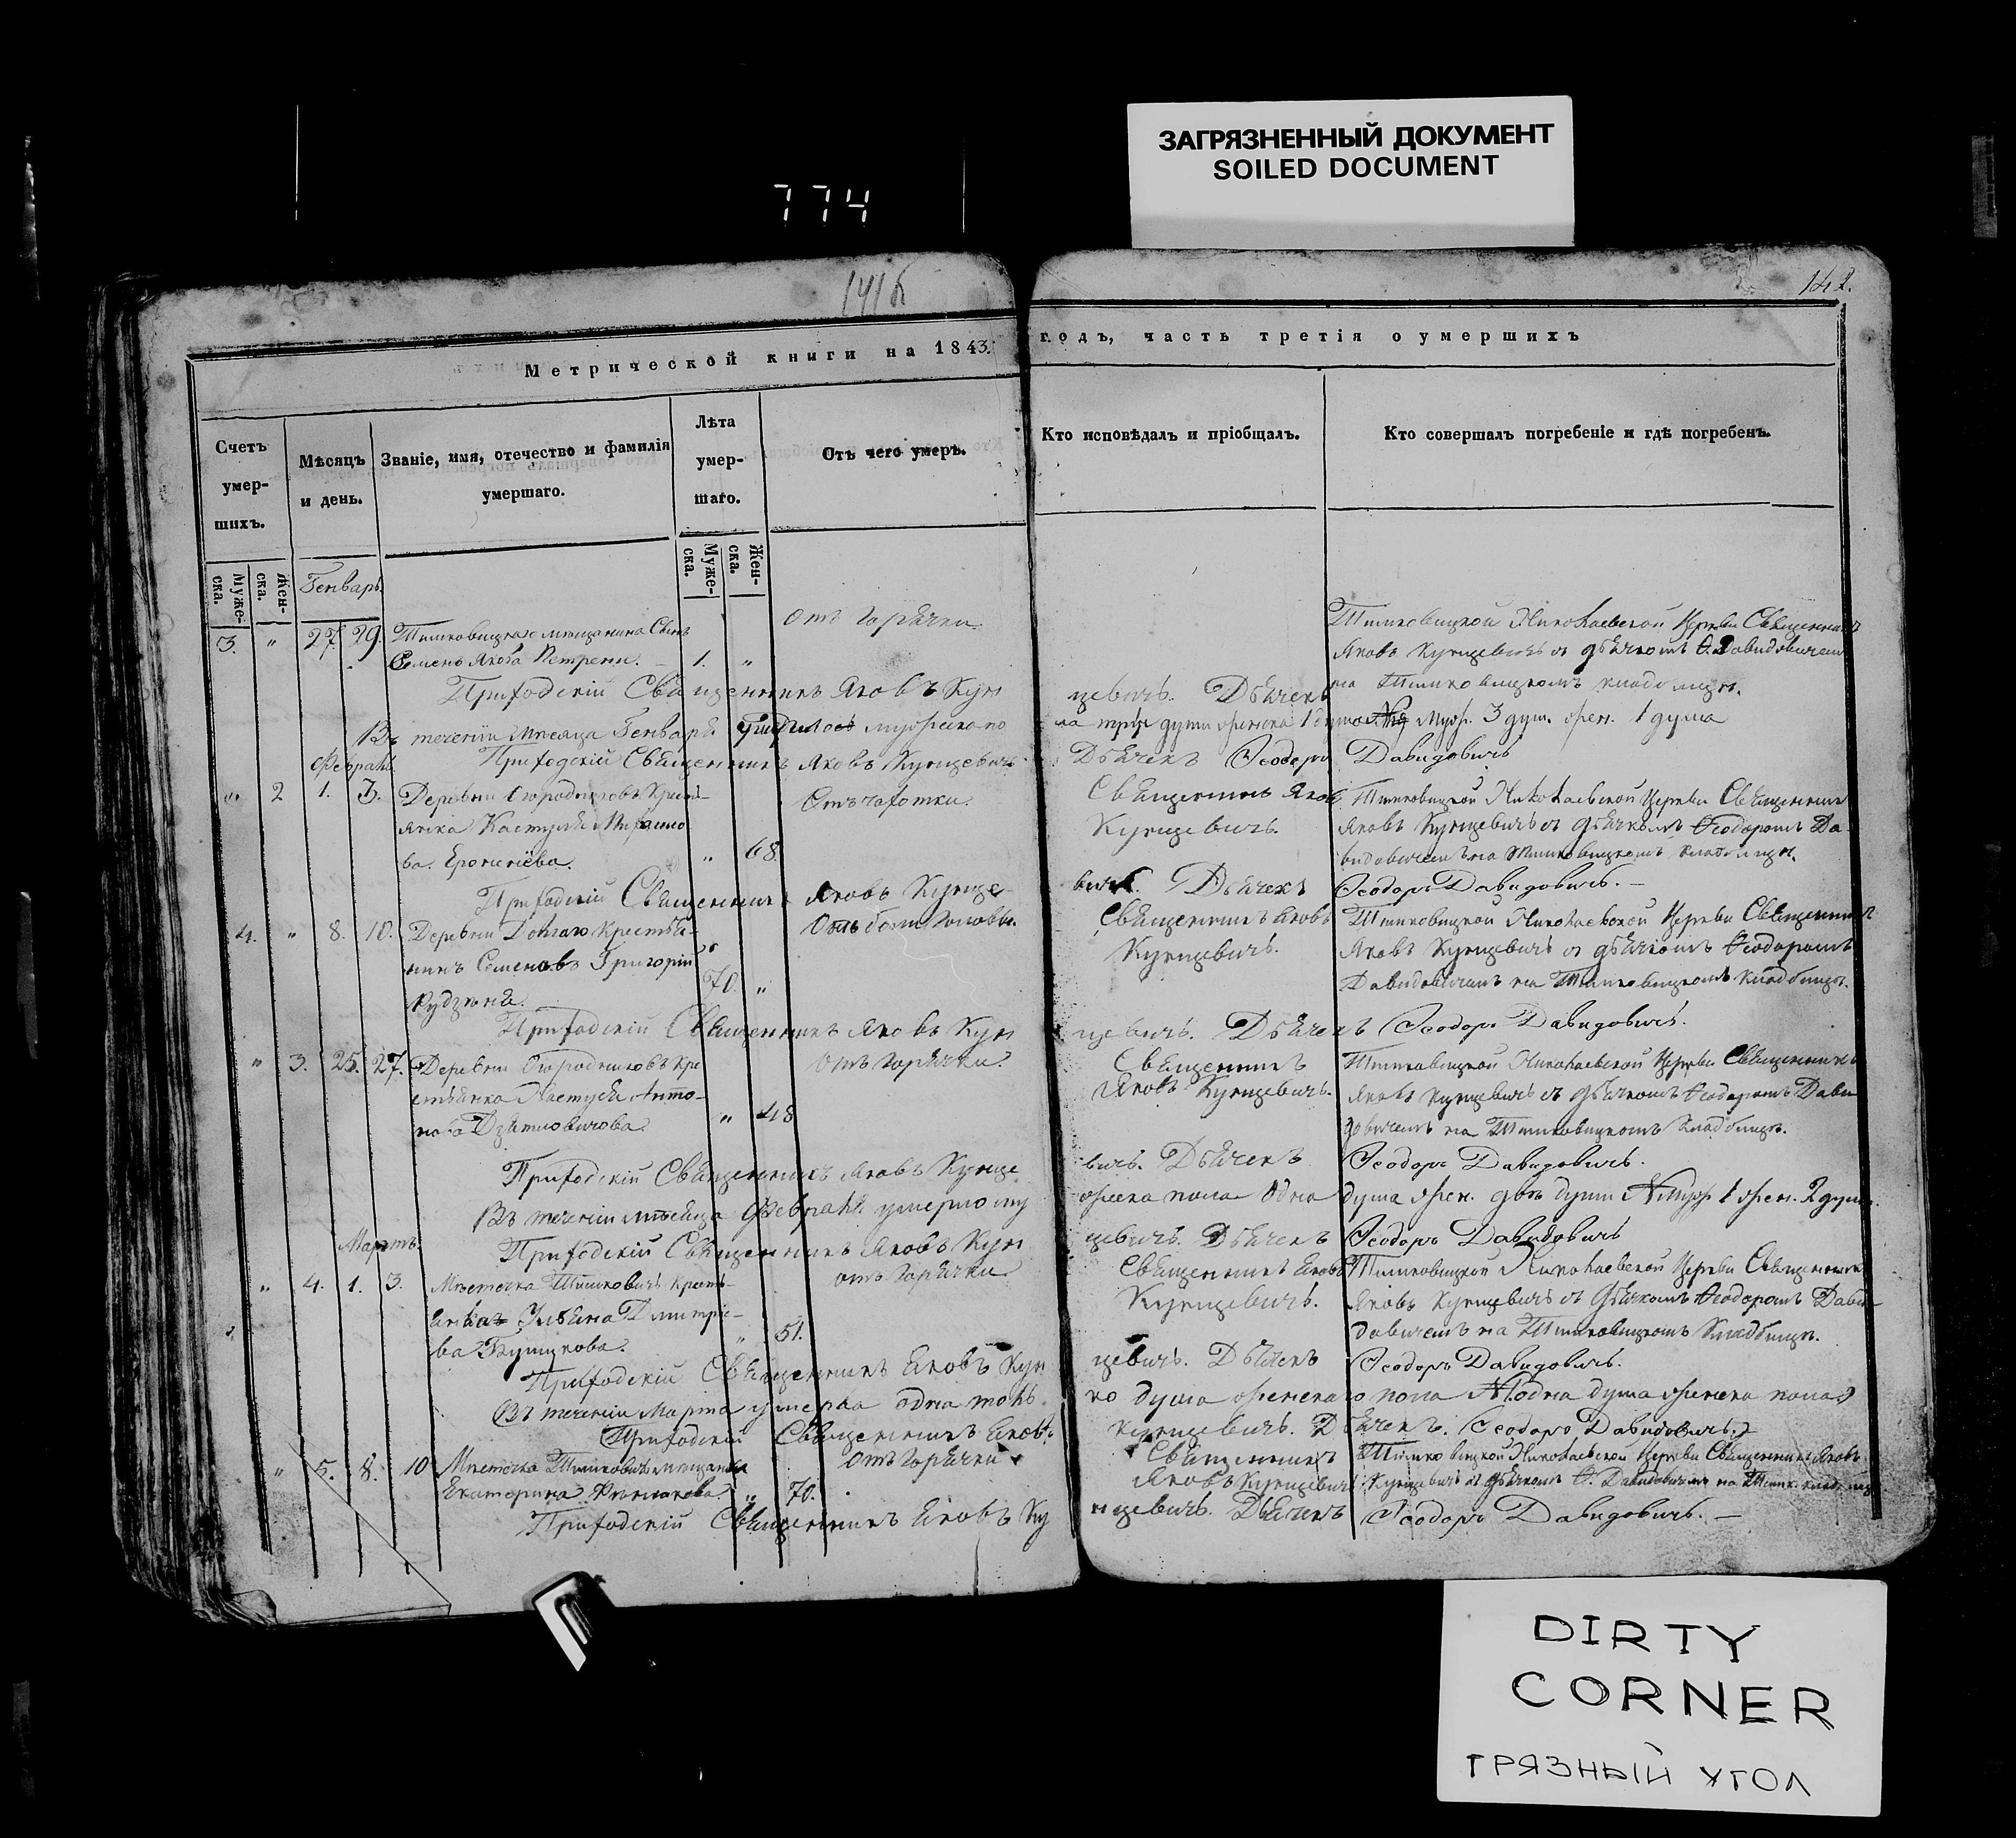 ЗАГРЯЗНЕННЫЙ ДОКУМЕНТ
SOILED DOCUMENT
774
141б
142.
Метрической книги на 1843.
годъ, часть третія о умершихъ
Счетъ умер-шихъ.
Мѣсяцъ и день.
Званіе, имя, отечество и фамилія умершаго.
Лѣта умер-шаго.
Отъ чего умеръ.
Кто исповѣдалъ и пріобщалъ.
Кто совершалъ погребеніе и гдѣ погребенъ.
Муже-ска.
Жен-ска.
Муже-ска.
Жен-ска.
Генварь
3. " 27. 29. Тимковицкаго мещанина Сынъ
Семенъ Якова Петреня. 1. "
отъ горячки
Тимковицкой Николаевской Церкви Священникъ
Яковъ Кунцевичъ съ дьячкомъ Ѳ. Давидовичемъ
на Тимковицкомъ кладбищѣ.
Приходскій Священникъ Яковъ Кун
цевичъ. Дьячекъ
Въ теченіи Мѣсяца Генваря
дута женска 1 душа Муж. 3 душ. жен. 1 душа
Февраль
Приходскій Священникъ Яковъ Кунцевичъ
Дьячекъ Ѳеодоръ Давидовичъ
" 2 1. 3. Деревни Огородниковъ Кресть-
янка
68.
Отъ чахотки.
Священникъ Яковъ
Кунцевичъ.
Тимковицкой Николаевской Церкви Священникъ
Яковъ Кунцевичъ съ дьячкомъ Ѳеодоромъ Да-
видовичемъ на Тимковицкомъ кладбищѣ.
Приходскій Священникъ Яковъ Кунце-
вичъ. Дьячекъ Ѳеодоръ Давидовичъ. —
4. " 8. 10. Деревни Долгаго Крестья-
нинъ Семеновъ Григорій
70. "
Отъ боли головы.
Священникъ Яковъ
Кунцевичъ.
Тимковицкой Николаевской Церкви Священникъ
Яковъ Кунцевичъ съ дьячкомъ Ѳеодоромъ
Давидовичемъ на Тимковицкомъ кладбищѣ.
Приходскій Священникъ Яковъ Кун
цевичъ. Дьячекъ Ѳеодоръ Давидовичъ.
" 3. 25. 27. Деревни Огородниковъ Кре
стьянка Настусья Анто-
нова
" 48
отъ горячки.
Священникъ
Яковъ Кунцевичъ.
Тимковицкой Николаевской Церкви Священникъ
Яковъ Кунцевичъ съ дьячкомъ Ѳеодоромъ Дави
довичемъ на Тимковицкомъ кладбищѣ.
Приходскій Священникъ Яковъ Кунце
вичъ. Дьячекъ Ѳеодоръ Давидовичъ.
Въ теченіи мѣсяца Февраля умерло му
жеска пола одна душа жен. двѣ души муж 1 жен. 2 души.
Мартъ.
Приходскій Священникъ Яковъ Кун
цевичъ. Дьячекъ Ѳеодоръ Давидовичъ
" 4. 1. 3. Мѣстечка Тимковичъ кресть-
янка Ульяна Дмитріе-
ва
" 51.
отъ горячки
Священникъ Яковъ
Кунцевичъ.
Тимковицкой Николаевской Церкви Священникъ
Яковъ Кунцевичъ съ дьячкомъ Ѳеодоромъ Дави-
довичемъ на Тимковицкомъ кладбищѣ.
Приходскій Священникъ Яковъ Кун
цевичъ. Дьячекъ Ѳеодоръ Давидовичъ.
Въ теченіи Марта умерла одна толь-
ко душа женскаго пола одна душа женска пола
Приходскій Священникъ Яковъ
Кунцевичъ. Дьячекъ. Ѳеодоръ Давидовичъ.
" 5. 8. 10 Мѣстечка Тимковичъ мещанка
Екатерина
" 70.
отъ горячки
Священникъ
Яковъ Кунцевичъ
Тимковицкой Николаевской Церкви Священникъ Яковъ
Кунцевичъ съ дьячкомъ Ѳ. Давидовичемъ на Тимк. кладбищѣ
Приходскій Священникъ Яковъ Ку
нцевичъ. Дьячекъ Ѳеодоръ Давидовичъ. —
DIRTY
CORNER
ГРЯЗНЫЙ УГОЛ